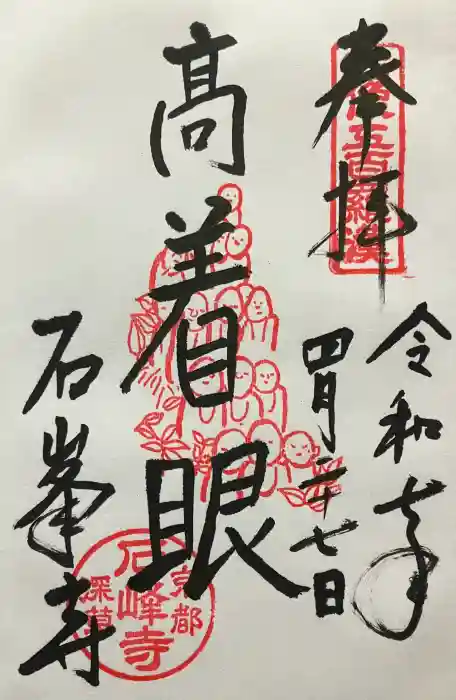 奉拝
五百羅漢
令和七年
四月二十七日
高着眼
石峯寺
京都
石峰寺
深草